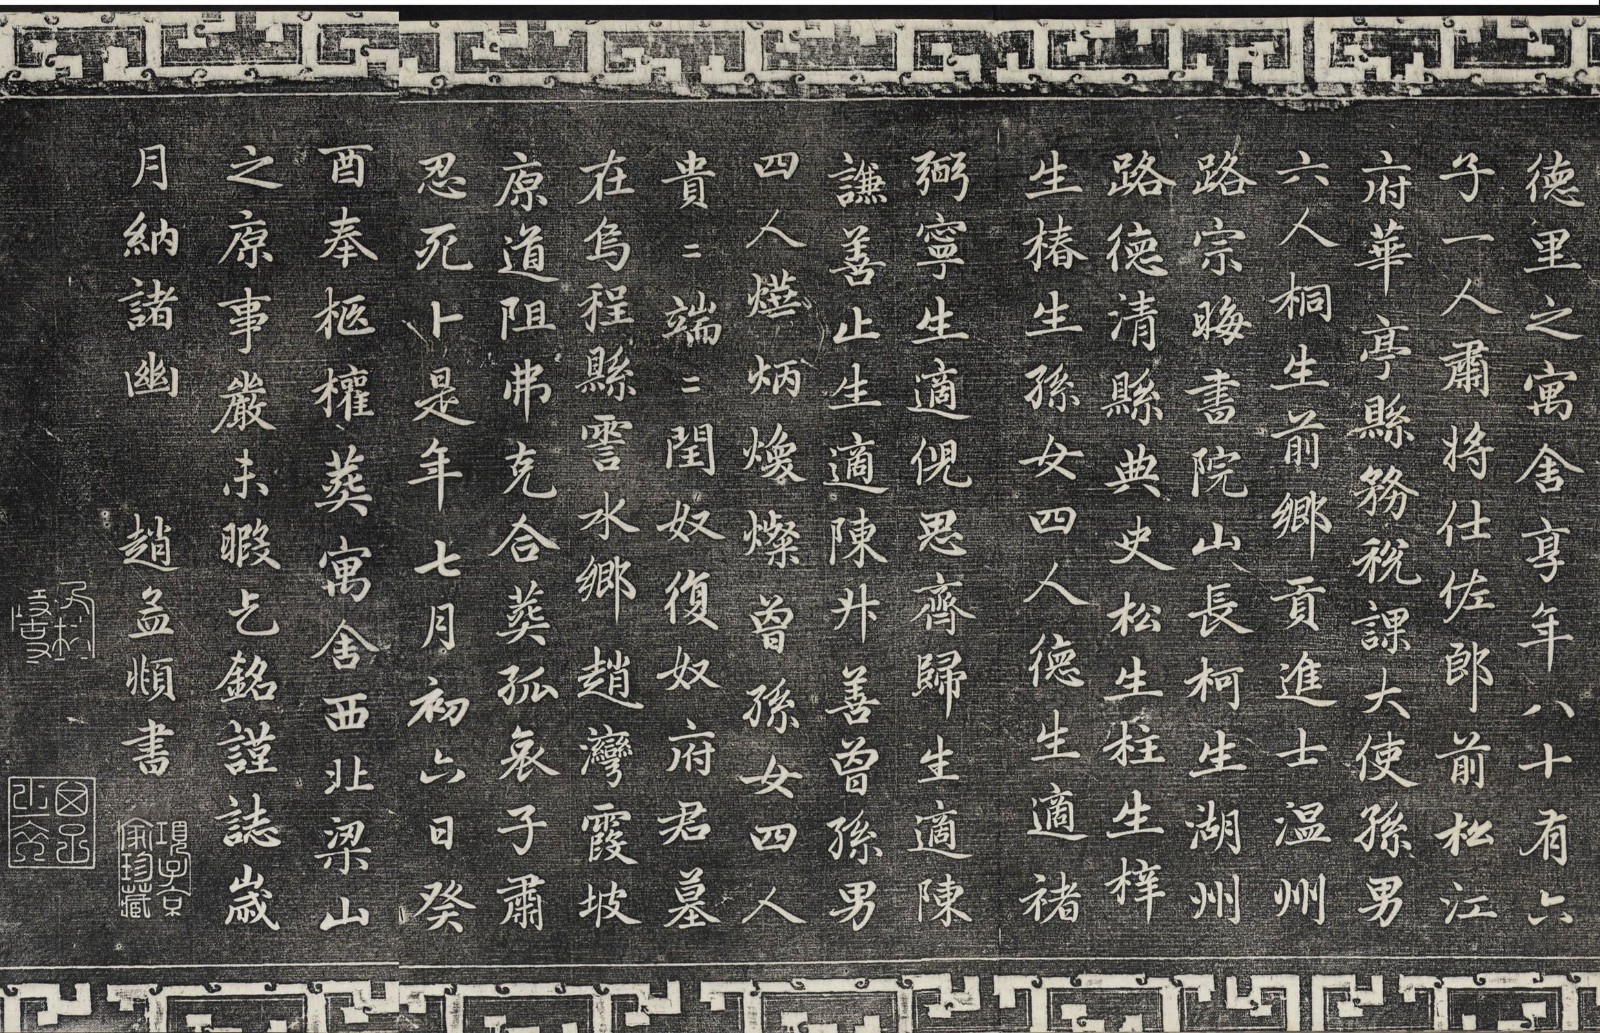 德里之寓舍享年八十有六
子一人肅將仕佐郎前松江
府華亭縣務税課大使孫男
六人桐生前鄉貢進士温州
路宗晦書院山長柯生湖州
路德清縣典史松生程生梓
生椿生孫女四人德生適褚
弼寧生適倪思齊歸生適陳
謙善止生適陳升善曾孫男
四人㷼炳煥燦曾孫女四人
貴二端二閏奴復奴府君墓
在烏程縣霅水鄉趙灣霞坡
原道阻弗克合葬孤哀子肅
忍死卜是年七月初六日癸
酉奉柩權葬寓舍西北梁山
之原事嚴未暇乞銘謹誌歲
月納諸幽 趙孟頫書
項子京家珍藏